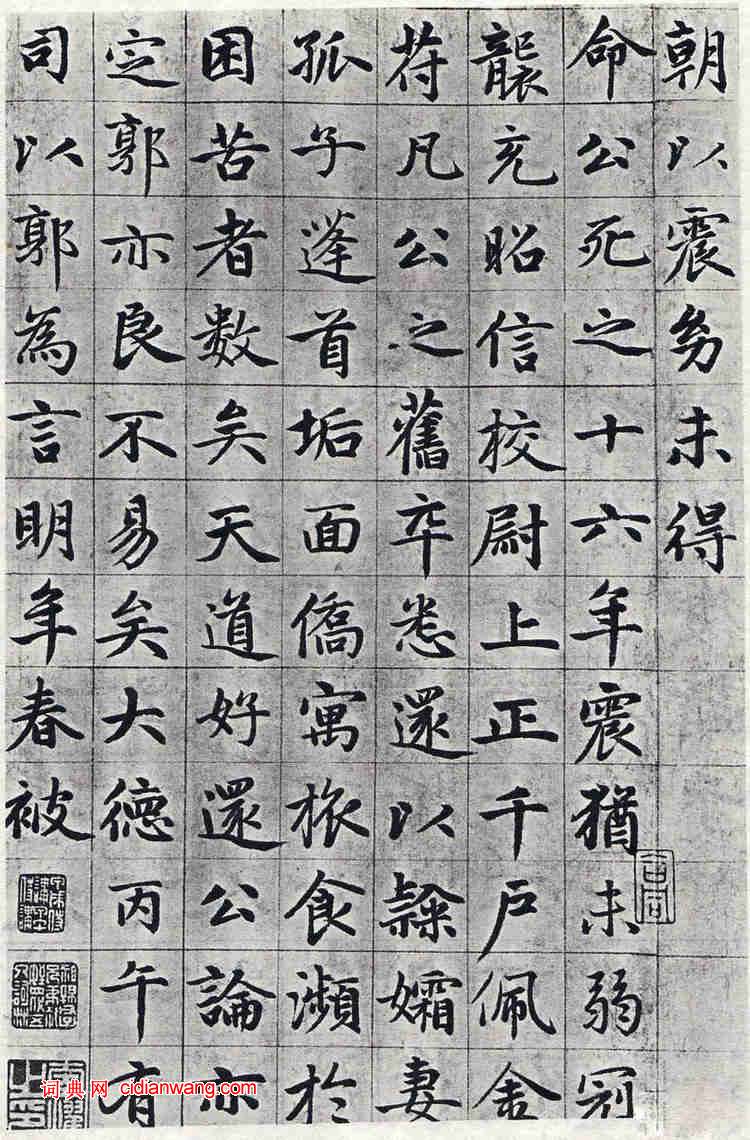 朝以震幼未得
命公死之十六年震猶未弱冠
襲充昭信校尉上正千戶佩金
苻凡公之舊卒悉還以隸孀妻
孤子蓬首垢面僑寓旅食瀕於
困苦者數矣天道好還公論亦
定郭亦良不易矣大德丙午有
司以郭為言明年春被
词典网 cidianwang.com